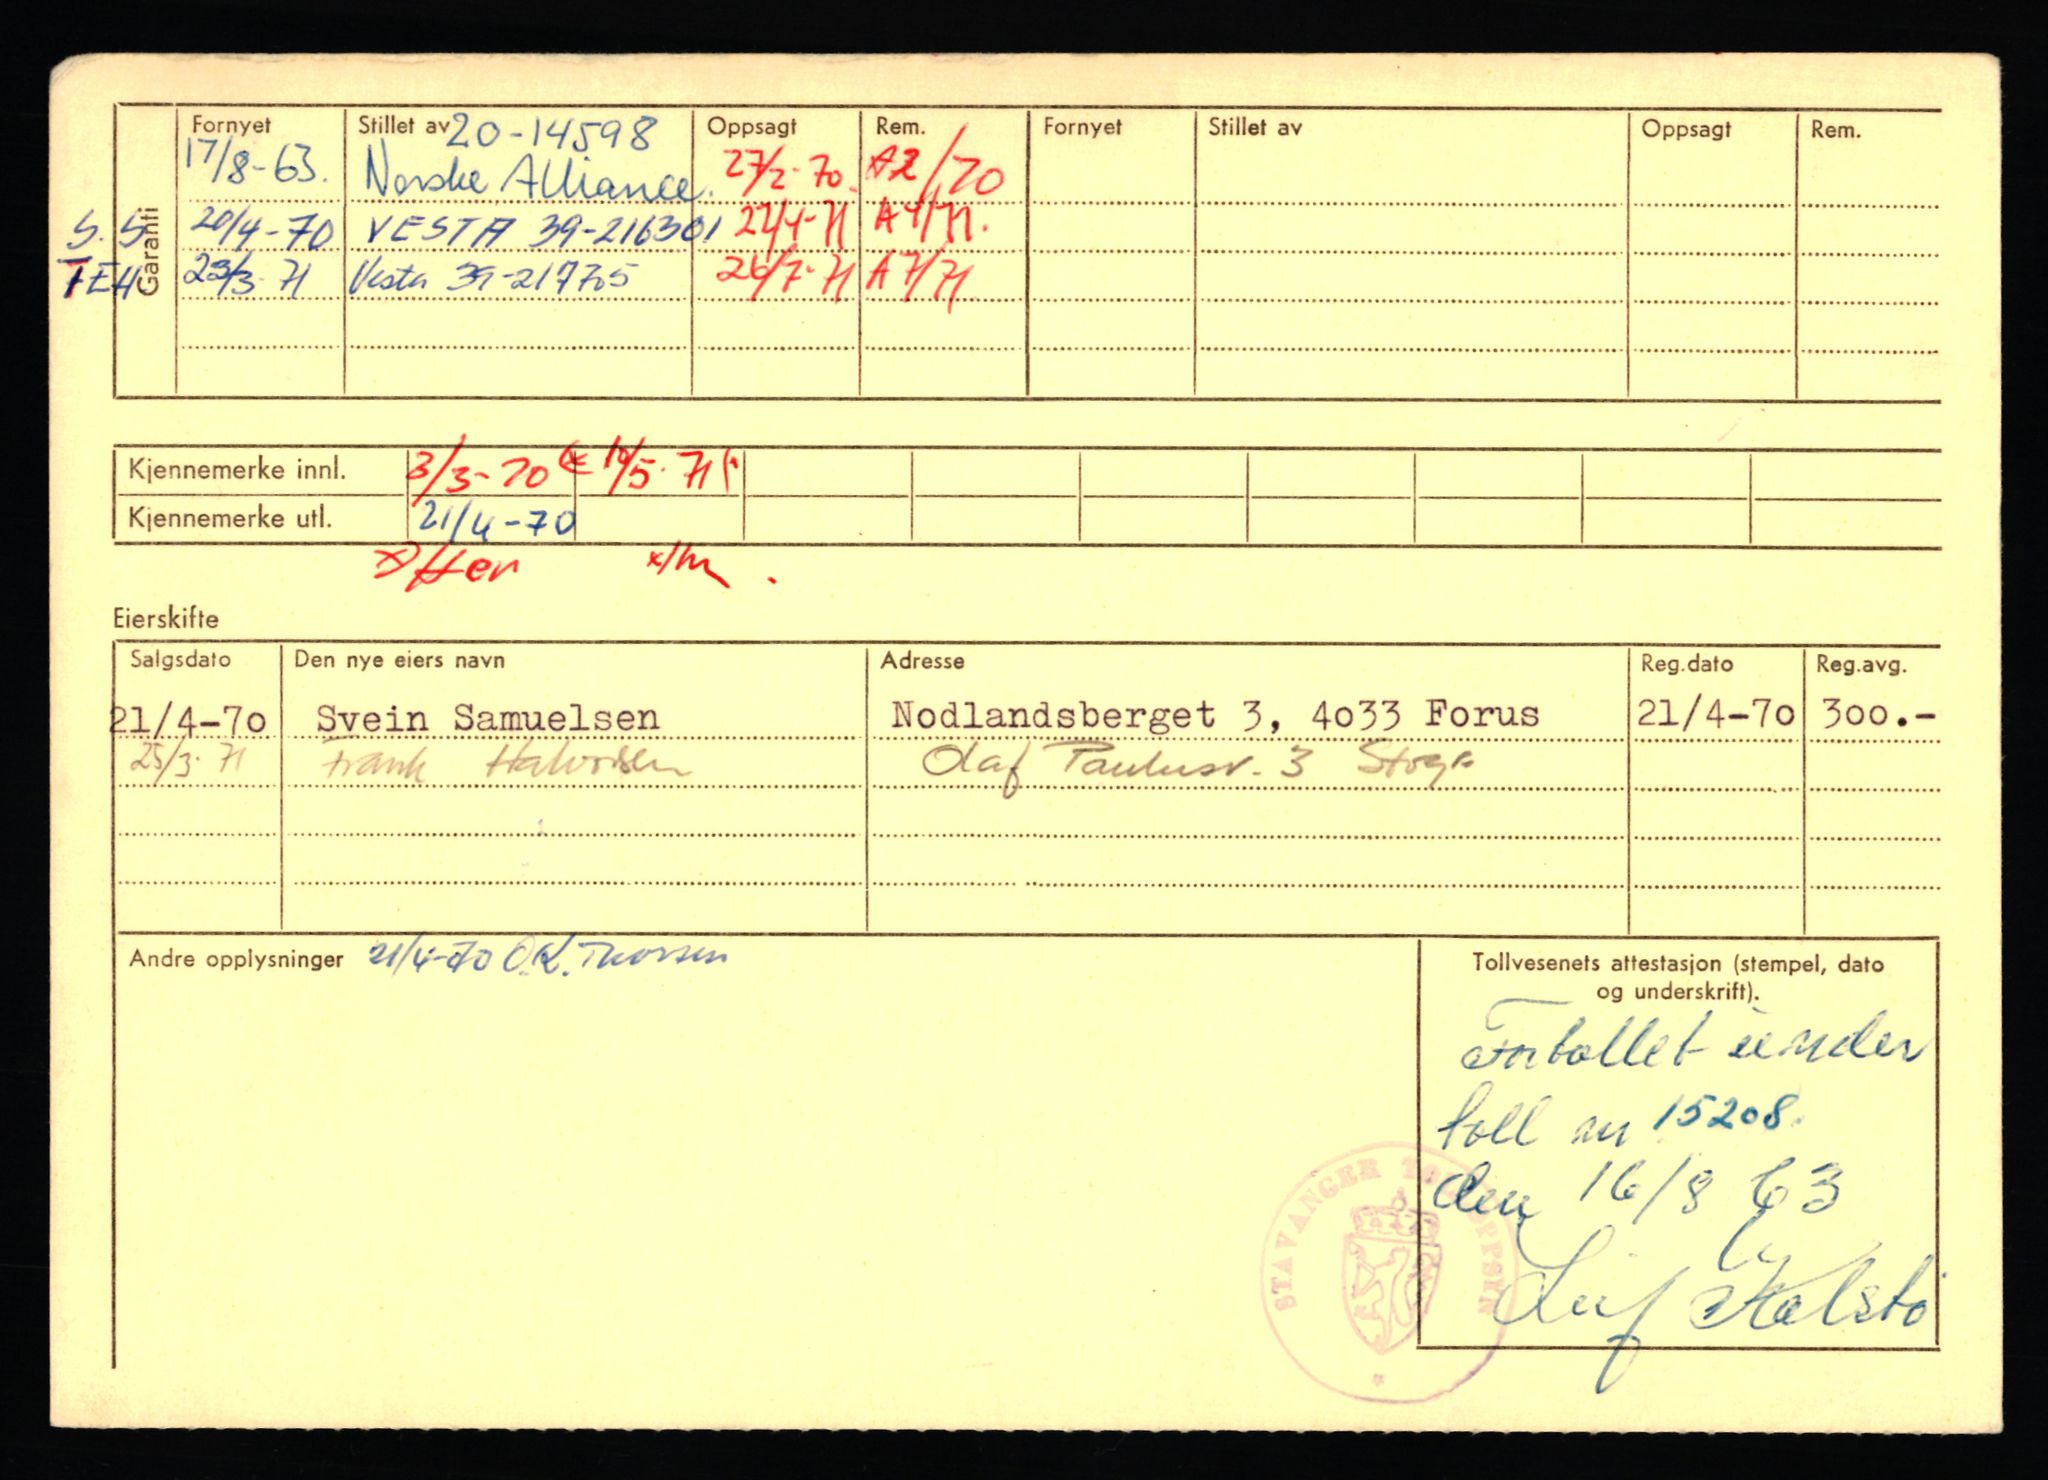 Garanti
Fornyet Stillet av 20-14598 Oppsagt Rem. Fornyet Stillet av Oppsagt Rem.
17/8-63. Norske Alliance. 27/2-70. A2/70
S.S 20/4-70 VESTA 39-216301 27/4-71 A4/71.
FEH 23/3-71 Vesta 39-217705 26/7-71 A7/71
Kjennemerke innl. 3/3-70 10/5-71
Kjennemerke utl. 21/4-70
Eierskifte
Salgsdato Den nye eiers navn Adresse Reg.dato Reg.avg.
21/4-70 Svein Samuelsen Nodlandsberget 3, 4033 Forus 21/4-70 300.-
25/3-71 Frank Halvorsen Olaf Paulusv. 3 Stvgr
Andre opplysninger 21/4-70 O.K. Thorsen
Tollvesenets attestasjon (stempel, dato
og underskrift).
Fortollet under
toll nr 15208.
den 16/8 63
Leif Kalstø
STAVANGER TOLLOPPSYN